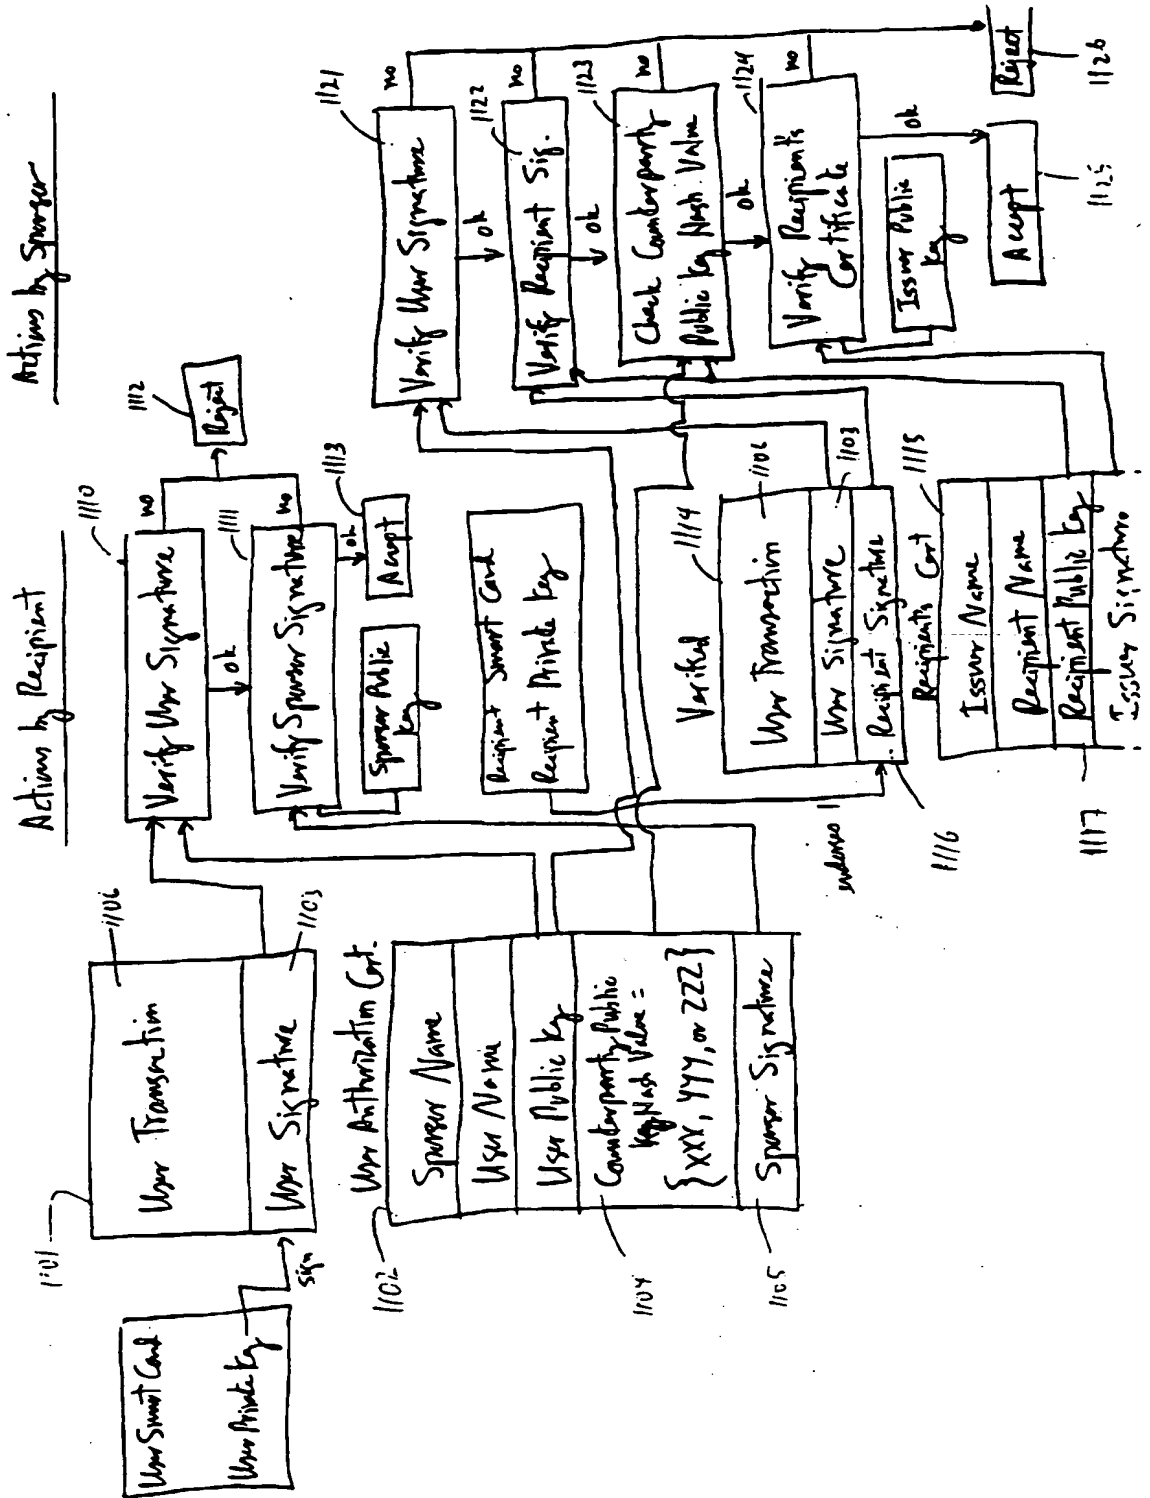 Actions by Recipient
Actions by Sponsor
User Smart Card
User Private Key
sign
1101
User Transaction
1106
User Signature
1103
User Authorization Cert.
1102
Sponsor Name
User Name
User Public Key
Counterparty Public
Key Hash Value =
{XXX, YYY, or ZZZ}
1104
Sponsor Signature
1105
1110
Verify User Signature
no
ok
1111
Verify Sponsor Signature
no
ok
1112
Reject
1113
Accept
Sponsor Public
Key
Recipient Smart Card
Recipient Private Key
Verified
1114
User Transaction
1106
User Signature
1103
Recipient Signature
endorses
1116
Recipients Cert
1115
Issuer Name
Recipient Name
Recipient Public Key
1117
Issuer Signature
1121
Verify User Signature
no
ok
1122
Verify Recipient Sig.
no
ok
1123
Check Counterparty
Public Key Hash Value
no
ok
1124
Verify Recipients
Certificate
no
ok
Issuer Public
Key
Accept
1125
Reject
1126